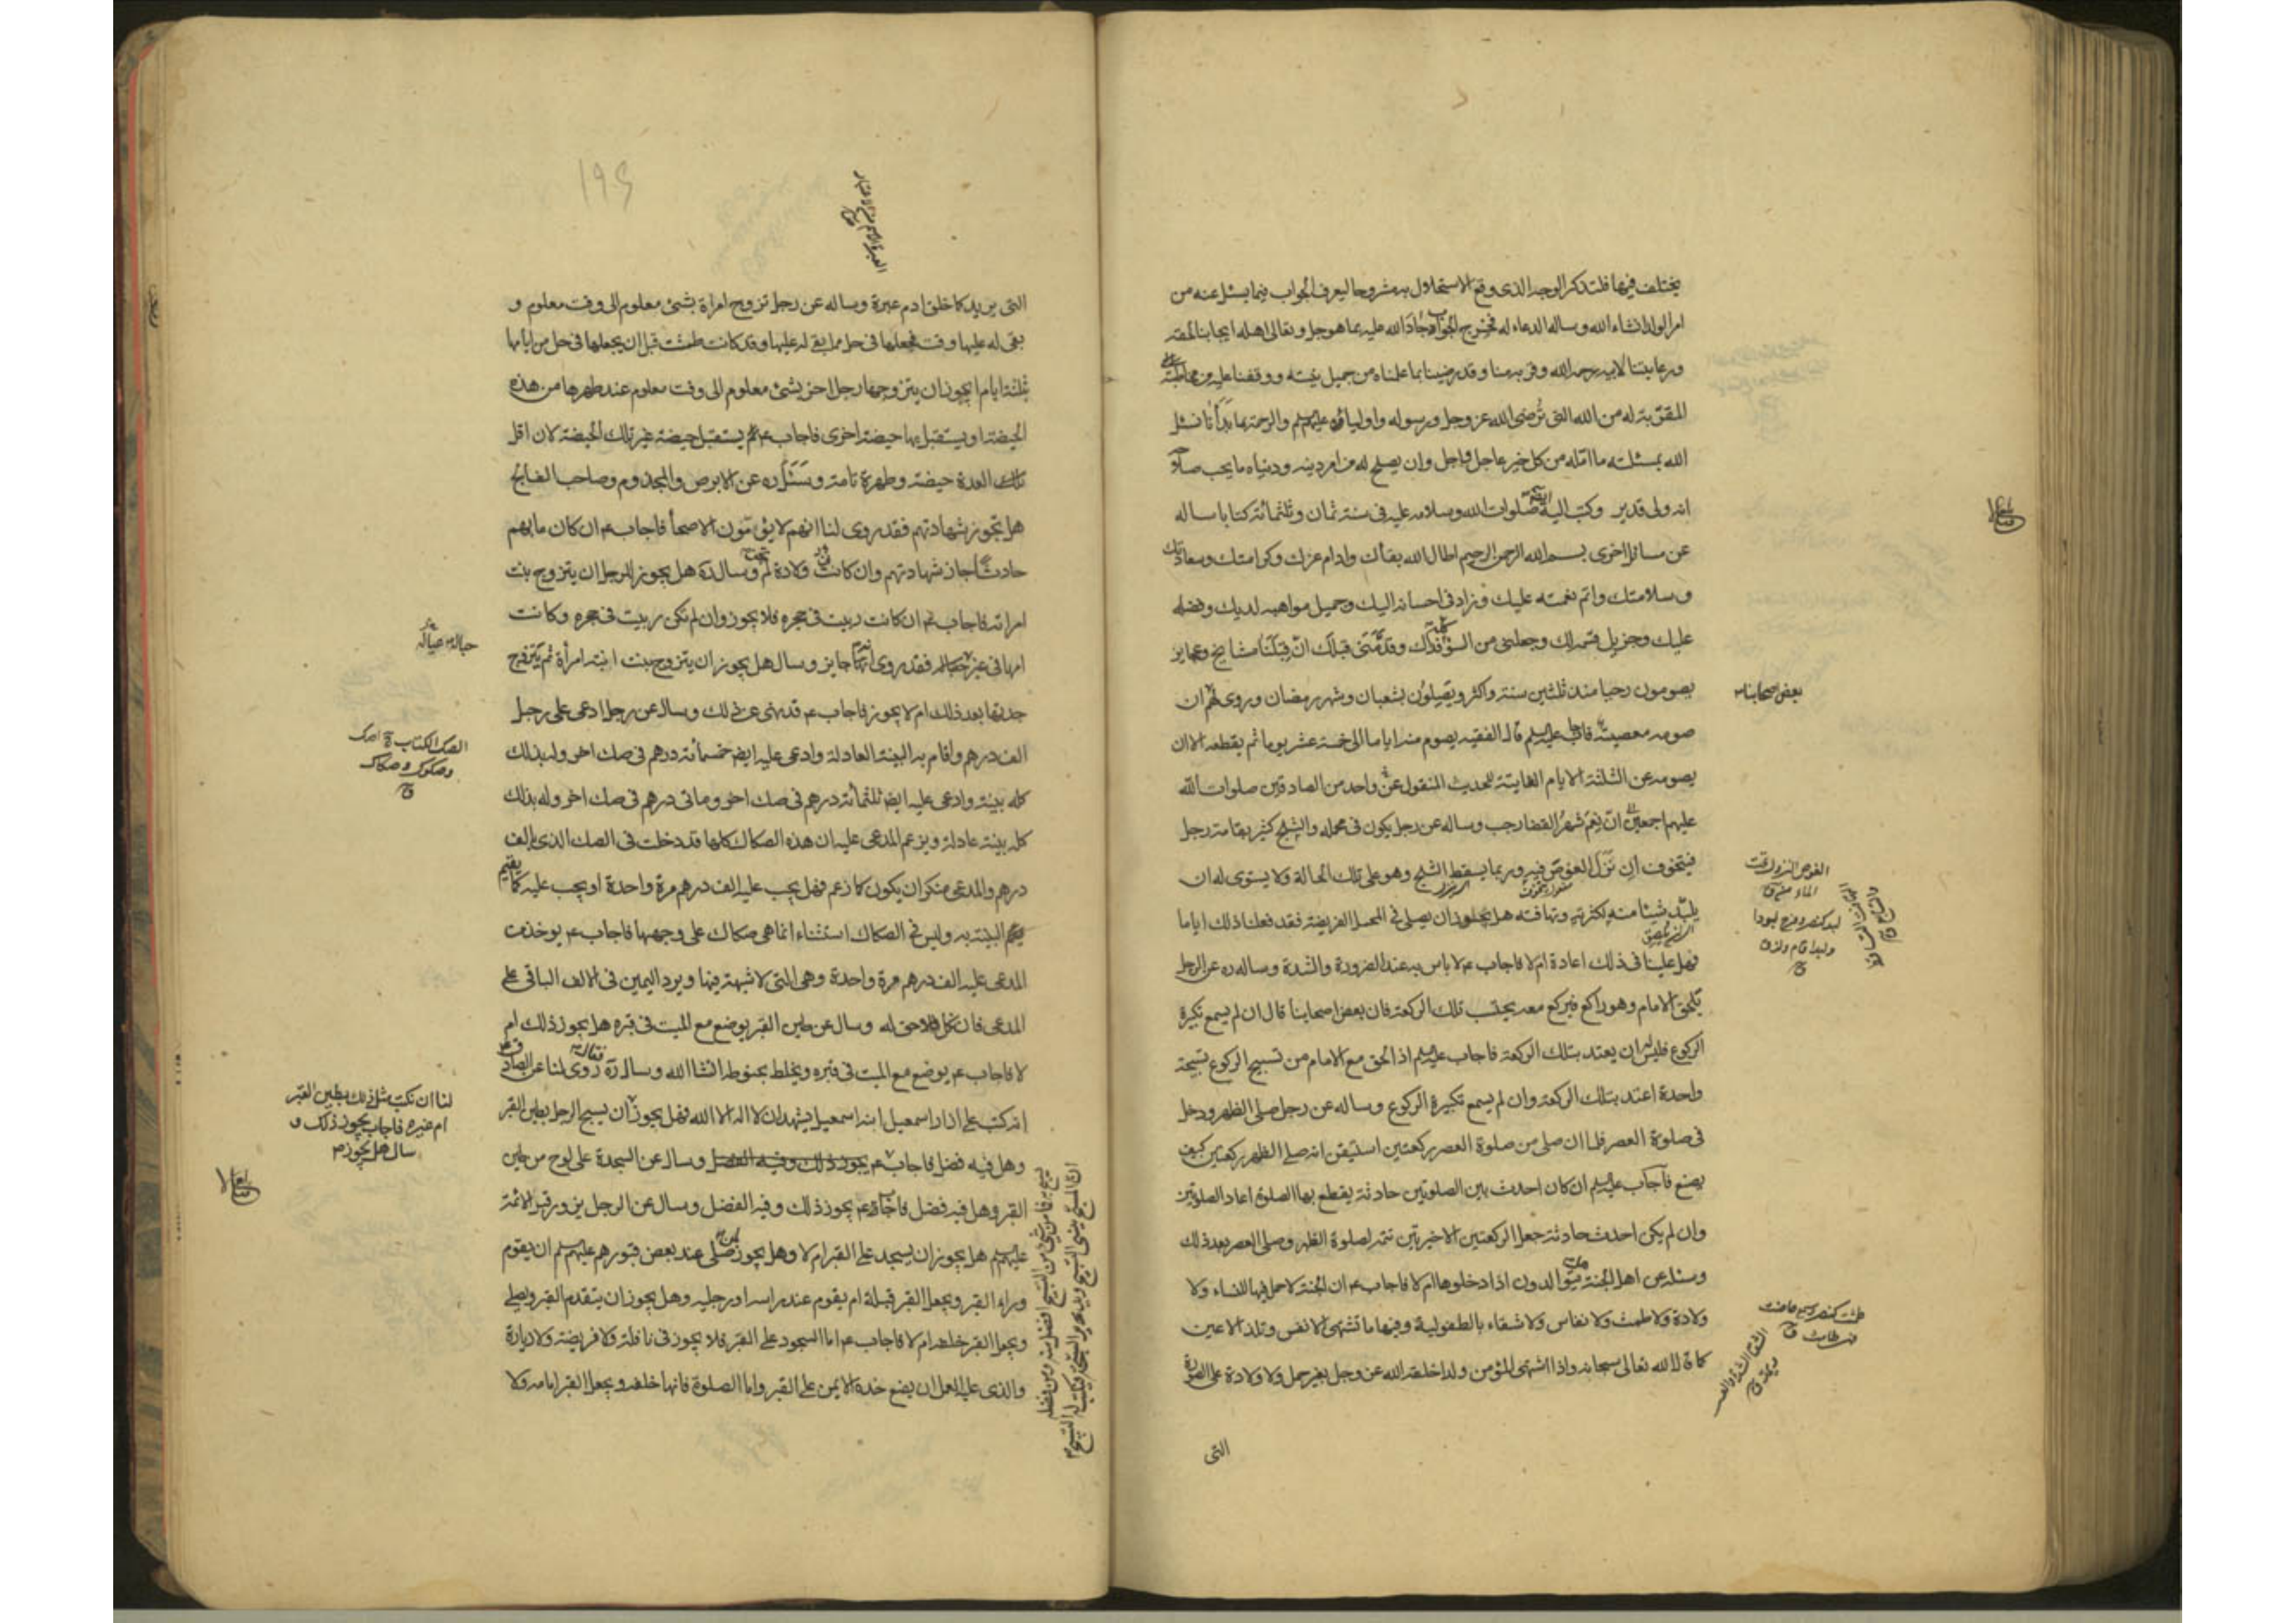 يختلف فيها فلتذكر الوجه الذى وقع الاستحلال به مشروحا ليعرف الجواب فيما يسئل عنه من
امر الولد انشاء الله وساله الدعاء له فخرج الجواب جاد الله عليه بما هو جل وتعالى اهله ايجابنا لحقه
ورعايتنا لابيه رحمه الله وقربه منا وقد رضينا بما علمناه من جميل نيته ووقفنا عليه من مخاطبته
المقرّبة له من الله التى تُرضى الله عز وجل ورسوله واولياؤه عليهم السلم والرحمة بما بدأنا نسئل
الله بمسئلته ما امّله من كل خير عاجل واجل وان يصلح له من امر دينه ودنياه ما يحب صلاحه
انه ولى قدير وكتب اليه ايضا صلوات الله وسلامه عليه فى سنة ثمان وثلثمائة كتابا ساله
عن مسائل اخرى بسم الله الرحمن الرحيم اطال الله بقاك وادام عزك وكرامتك وسعادتك
وسلامتك واتم نعمته عليك وزاد فى احسانه اليك وجميل مواهبه لديك وفضله
عليك وجزيل قسمه لك وجعلنى من السوء كله فداك وقدّمنى قبلك انّ قِبَلَنا مشايخ وعجايز
يصومون رجبا منذ ثلثين سنة واكثر ويصلون بشعبان وشهر رمضان وروى لهم ان
بعض اصحابنا
صومه معصية فاجاب عليه السلم قال الفقيه يصوم منه اياما الى خمسة عشر يوما ثم يقطعه الا ان
يصومه عن الثلثة الايام الفايتة للحديث المنقول عن واحد من الصادقين صلوات الله
عليهم اجمعين انّ نِعْمَ شهرُ القضا رجب وساله عن رجل يكون فى محمله والثلج كثير بقامة رجل
فيتخوف ان نَزَل الغوص فيه وربما يسقط الثلج وهو على تلك الحالة ولا يستوى له ان
يلبّد شيئا منه لكثرته وتهافته هل يجوز ان يصلى فى المحمل الفريضة فقد فعلنا ذلك اياما
فهل علينا فى ذلك اعادة ام لا فاجاب ع لا باس به عند الضرورة والشدة وساله ره عن الرجل
يلحق الامام وهو راكع فيركع معه يحتسب تلك الركعة فان بعض اصحابنا قال ان لم يسمع تكبيرة
الركوع فليس له ان يعتد بتلك الركعة فاجاب عليه السلم اذا لحق مع الامام من تسبيح الركوع تسبيحة
واحدة اعتد بتلك الركعة وان لم يسمع تكبيرة الركوع وساله عن رجل صلى الظهر ودخل
فى صلوة العصر فلما ان صلى من صلوة العصر ركعتين استيقن انه صلى الظهر ركعتين كيف
يصنع فاجاب عليه السلم ان كان احدث بين الصلوتين حادثة يقطع بها الصلوة اعاد الصلوتين
وان لم يكن احدث حادثة جعل الركعتين الاخيرتين تتمة لصلوة الظهر وصلى العصر بعد ذلك
وسئله عن اهل الجنة هل يتوالدون اذا دخلوها ام لا فاجاب ع ان الجنة لا حمل فيها للنساء ولا
ولادة ولا طمث ولا نفاس ولا شقاء بالطفولية وفيها ما تشتهى الانفس وتلذ الاعين
كما قال الله تعالى سبحانه واذا اشتهى المؤمن ولدا خلقه الله عز وجل بغير حمل ولا ولادة على الصورة
التى
التى يريد كما خلق ادم عبرة وساله عن رجل تزوج امراة بشئ معلوم الى وقت معلوم و
بقى له عليها وقت فجعلها فى حل مما بقى له عليها وقد كانت طمثت قبل ان يجعلها فى حل من ايامها
بثلثة ايام ايجوز ان يتزوجها رجل اخر بشئ معلوم الى وقت معلوم عند طهرها من هذه
الحيضة او يستقبل بها حيضة اخرى فاجاب ع يستقبل حيضة غير تلك الحيضة لان اقل
تلك العدة حيضة وطهرة تامة وسئله ره عن الابرص والمجذوم وصاحب الفالج
هل تجوز شهادتهم فقد روى لنا انهم لا يؤمّون الاصحأ فاجاب ع ان كان ما بهم
حادثا جاز شهادتهم وان كانت ولادة لم تجز وساله ره هل يجوز للرجل ان يتزوج بنت
امراته فاجاب ع ان كانت ربيت فى حجره فلا يجوز وان لم تكن ربيت فى حجره وكانت
امها فى غير حباله فقد روى انه جايز وسال هل يجوز ان يتزوج بنت ابنة امرأة ثم يتزوج
جدتها بعد ذلك ام لا يجوز فاجاب ع قد نهى عن ذلك وسال عن رجل ادعى على رجل
الف درهم واقام به البينة العادلة وادعى عليه ايضا خمسمائة درهم فى صك اخر وله بذلك
كله بينة وادعى عليه ايضا ثلثمائة درهم فى صك اخر ومائتى درهم فى صك اخر وله بذلك
كله بينة عادلة ويزعم المدعى عليه ان هذه الصكاك كلها قد دخلت فى الصك الذى بالف
درهم والمدعى منكر ان يكون كما زعم فهل يجب عليه الف درهم مرة واحدة او يجب عليه كما يقيم
البينة به وليس فى الصكاك استثناء انما هى صكاك على وجهها فاجاب ع يوخذ من
المدعى عليه الف درهم مرة واحدة وهى التى لا شبهة فيها ويرد اليمين فى الالف الباقى على
المدعى فان نكل فلا حق له وسال عن طين القبر يوضع مع الميت فى قبره هل يجوز ذلك ام
لا فاجاب ع يوضع مع الميت فى قبره ويخلط بحنوطه انشا الله وسال ره فقال روى لنا عن الصادق ع
انه كتب على ازار اسمعيل ابنه اسمعيل يشهد ان لا اله الا الله فهل يجوز ان يسبح الرجل بطين القبر
وهل فيه فضل فاجاب ع يجوز ذلك وفيه الفضل وسال عن السجدة على لوح من طين
القبر وهل فيه فضل فاجاب ع يجوز ذلك وفيه الفضل وسال عن الرجل يزور قبر الائمة
عليهم السلم هل يجوز ان يسجد على القبر ام لا وهل يجوز لمن صلى عند بعض قبورهم عليهم السلم ان يقوم
وراء القبر ويجعل القبر قبلة ام يقوم عند راسه او رجليه وهل يجوز ان يتقدم القبر ويصلى
ويجعل القبر خلفه ام لا فاجاب ع اما السجود على القبر فلا يجوز فى نافلة ولا فريضة ولا زيارة
والذى عليه العمل ان يضع خده الايمن على القبر واما الصلوة فانها خلفه ويجعل القبر امامه ولا
الصك الكتاب ج اصك
وصكوك وصكاك
لنا ان نكتب مثل ذلك بطين القبر
ام غيره فاجاب يجوز ذلك و
سال هل يجوز